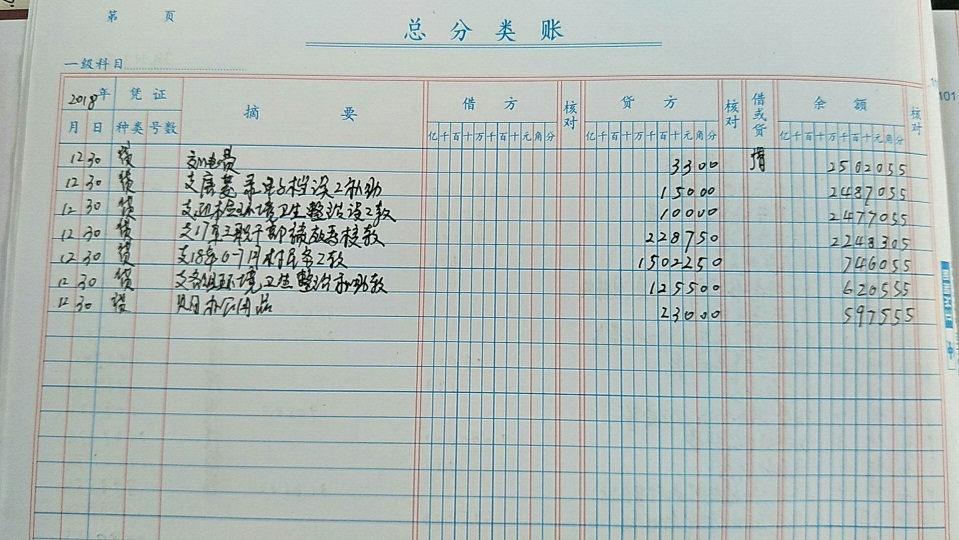 第 页
总 分 类 账
一级科目
2018年 凭 证 摘 要 借 方 核对 贷 方 核对 借或贷 余 额 核对
月 日 种类 号数 亿千百十万千百十元角分 亿千百十万千百十元角分 亿千百十万千百十元角分
12 30 费 3300 借 2502055
12 30 支 电子档误工补助 15000 2487055
12 30 支 环境卫生整治误工款 10000 2477055
12 30 支17年 干部绩效考核款 228750 2248305
12 30 支18年 月 工款 1502250 746055
12 30 支各组环境卫生整治补助款 125500 620555
12 30 办公用品 23000 597555
101